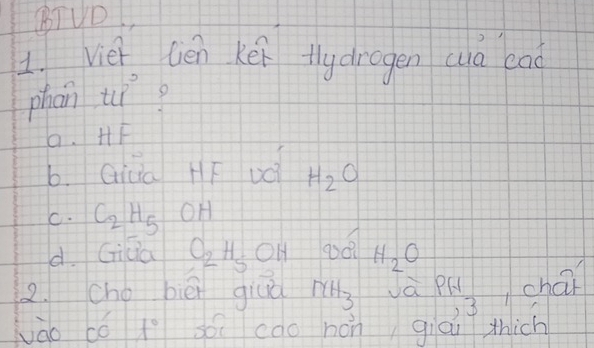 BTVD
1. Viết liên kết Hydrogen của các
phân tử?
a. HF
b. Giữa HF với H₂O
c. C₂H₅ OH
d. Giữa C₂H₅OH với H₂O
2. Cho biết giữa NH₃ và PH₃, chất
vào có t° sôi cao hơn, giải thích